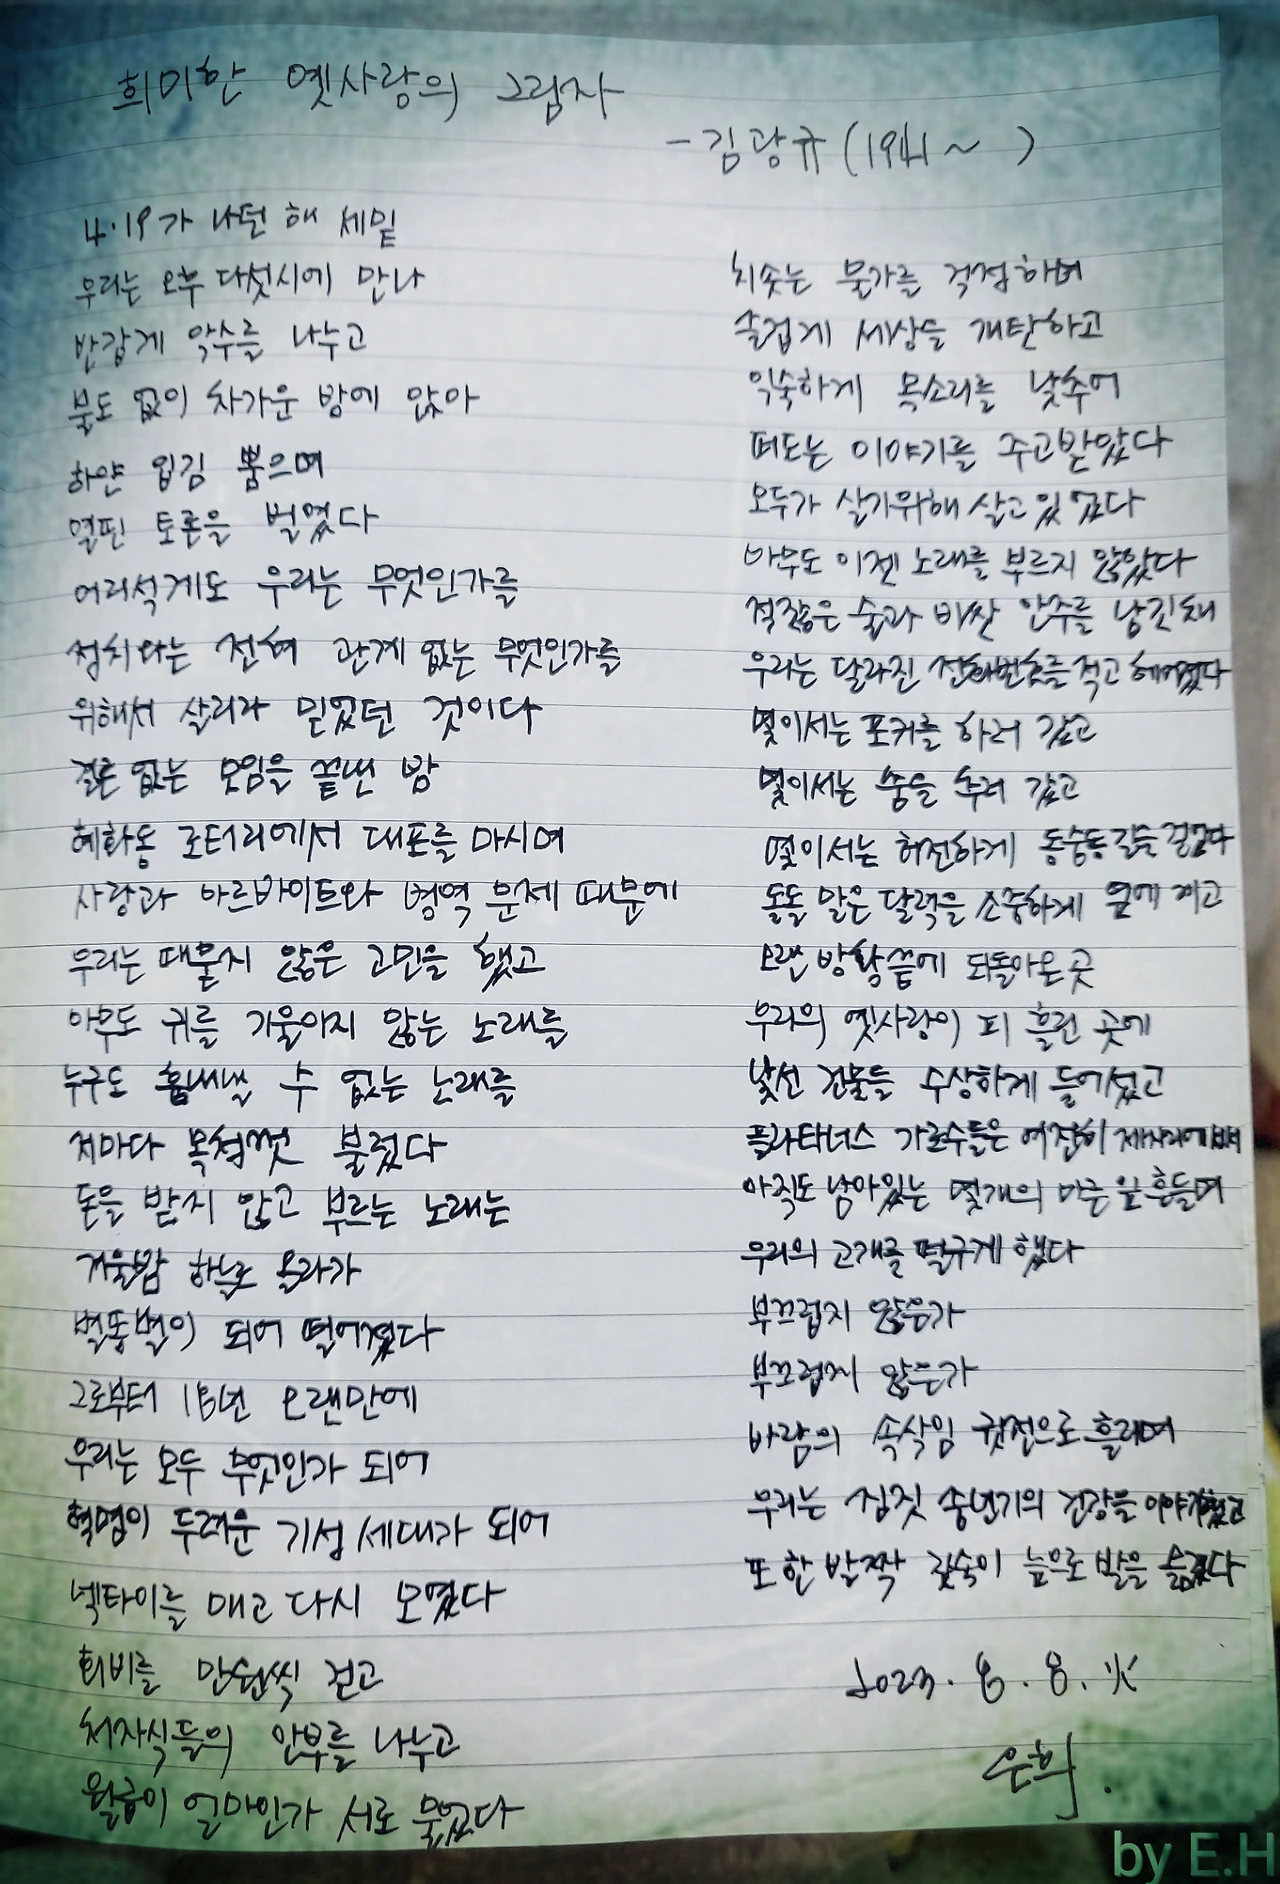 희미한 옛사랑의 그림자
- 김광규 (1941 ~ )
4·19가 나던 해 세밑
우리는 오후 다섯시에 만나
반갑게 악수를 나누고
불도 없이 차가운 방에 앉아
하얀 입김 뿜으며
열띤 토론을 벌였다
어리석게도 우리는 무엇인가를
정치와는 전혀 관계 없는 무엇인가를
위해서 살리라 믿었던 것이다
결론 없는 모임을 끝낸 밤
혜화동 로터리에서 대포를 마시며
사랑과 아르바이트와 병역 문제 때문에
우리는 때묻지 않은 고민을 했고
아무도 귀를 기울이지 않는 노래를
누구도 흉내낼 수 없는 노래를
저마다 목청껏 불렀다
돈을 받지 않고 부르는 노래는
겨울밤 하늘로 올라가
별똥별이 되어 떨어졌다
그로부터 18년 오랜만에
우리는 모두 무엇인가 되어
혁명이 두려운 기성 세대가 되어
넥타이를 매고 다시 모였다
회비를 만원씩 걷고
처자식들의 안부를 나누고
월급이 얼마인가 서로 물었다
치솟는 물가를 걱정하며
즐겁게 세상을 개탄하고
익숙하게 목소리를 낮추어
떠도는 이야기를 주고받았다
모두가 살기위해 살고 있었다
아무도 이젠 노래를 부르지 않았다
적잖은 술과 비싼 안주를 남긴채
우리는 달라진 전화번호를 적고 헤어졌다
몇이서는 포커를 하러 갔고
몇이서는 춤을 추러 갔고
몇이서는 허전하게 동숭동길을 걸었다
돌돌 말은 달력을 소중하게 옆에 끼고
오랜 방황 끝에 되돌아온 곳
우리의 옛사랑이 피 흘린 곳에
낯선 건물들 수상하게 들어섰고
플라타너스 가로수들은 여전히 제자리에 서서
아직도 남아있는 몇개의 마른 잎 흔들며
우리의 고개를 떨구게 했다
부끄럽지 않은가
부끄럽지 않은가
바람의 속삭임 귓전으로 흘리며
우리는 짐짓 중년기의 건강을 이야기했고
또 한 발짝 깊숙이 늪으로 발을 옮겼다
2023. 8. 8. 火
은희.
by E.H